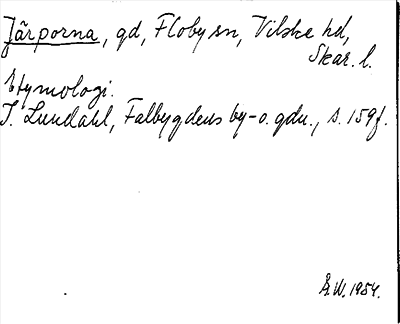 Järporna, gd, Floby sn, Vilske hd,
Skar. l.
Etymologi.
I. Lundahl, Falbygdens by- o. gdn., s. 159f.
Å.W. 1954.